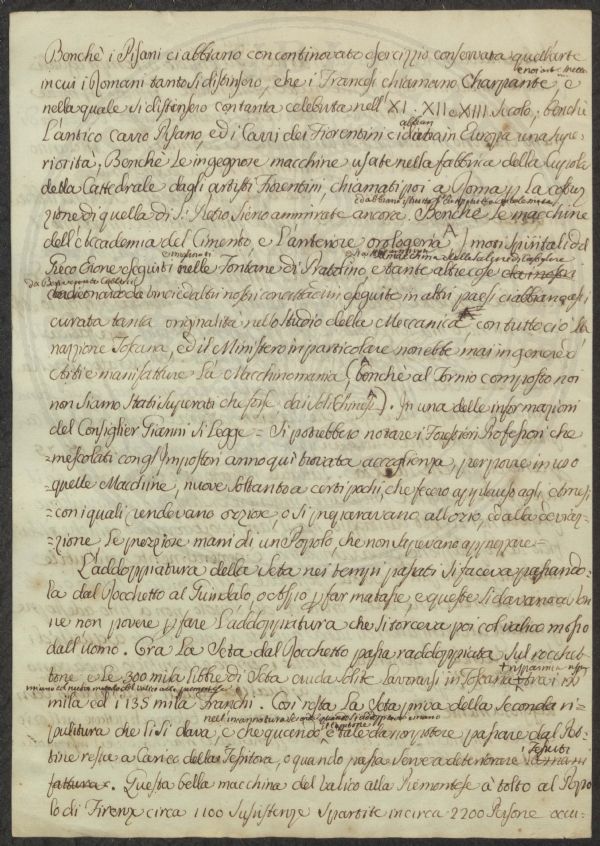 Benchè i Pisani ci abbiano con continovato esercizzio conservata quell'arte
in cui i Romani tanto si distinsero, che i Francesi chiamano Charpante, e
nella quale si distinsero con tanta celebrità nell' XI. XII e XIII Secolo; Benchè
L'antico Carro Pisano, ed i Carri dei Fiorentini ci abbian in Europa una supe-
riorità, Benchè Le ingegnose macchine usate nella fabbrica della Cupola
della Cattedrale dagli artisti Fiorentini, chiamati poi a Roma per La costru
zione di quella di S. Pietro sieno ammirate ancora, Benchè Le macchine
dell'Accademia del Cimento, e L'anteriore orologeria, i moti spiritali del
Greco Erone eseguiti nelle Fontane di Pratolino e tante altre cose
da Benvenuto Cellini
da Vinci ed altri nostri concittadini eseguite in altri paesi ci abbian assi
curata tanta originalità nello Studio della Meccanica, con tutto ciò La
nazzione Toscana, ed il Ministero in particolare non ebbe mai in genere d'
Arti e manifatture La Macchinomania (benchè al Tornio composto noi
non siamo stati superati che forse dai soli Chinesi). In una delle informazioni
del Consiglier Gianni si Legge = Si potrebbero notare i Forestieri Professori che
=mescolati cogl'Impostori anno qui trovata accoglienza, per porre in uso
=quelle Macchine, nuove soltanto a certi pochi, che fecero applauso agli
=con i quali rendevano ozziose, o si preparavano all'ozio, ed alla
=zione, Le prezziose mani di un Popolo, che non sapevano apprezzare=
L'addoppiatura della Seta nei tempi passati si faceva passando-
la dal Rocchetto al Guindalo, o Aspo per far matasse, e queste si davano a
ne non povere per fare L'addoppiatura che si torceva poi col valico mosso
dall'uomo. Ora La Seta dal Rocchetto passa raddoppiata sul rocchet-
tone e Le 300 mila libbre di Seta cruda solite lavorarsi in Toscana tra i
mila ed i 135 mila Franchi. Così resta La Seta priva della Seconda ri-
pulitura che Li si dava, e che quando è tale da non potere passare dal Pet-
tine resta a Carico della Tessitora, o quando passa serve a deteriorare i Tessuti
Questa bella macchina del Valico alla Piemontese à tolto al Popo-
lo di Firenze circa 1100 sussistenze spartite in circa 2200 Persone occu-